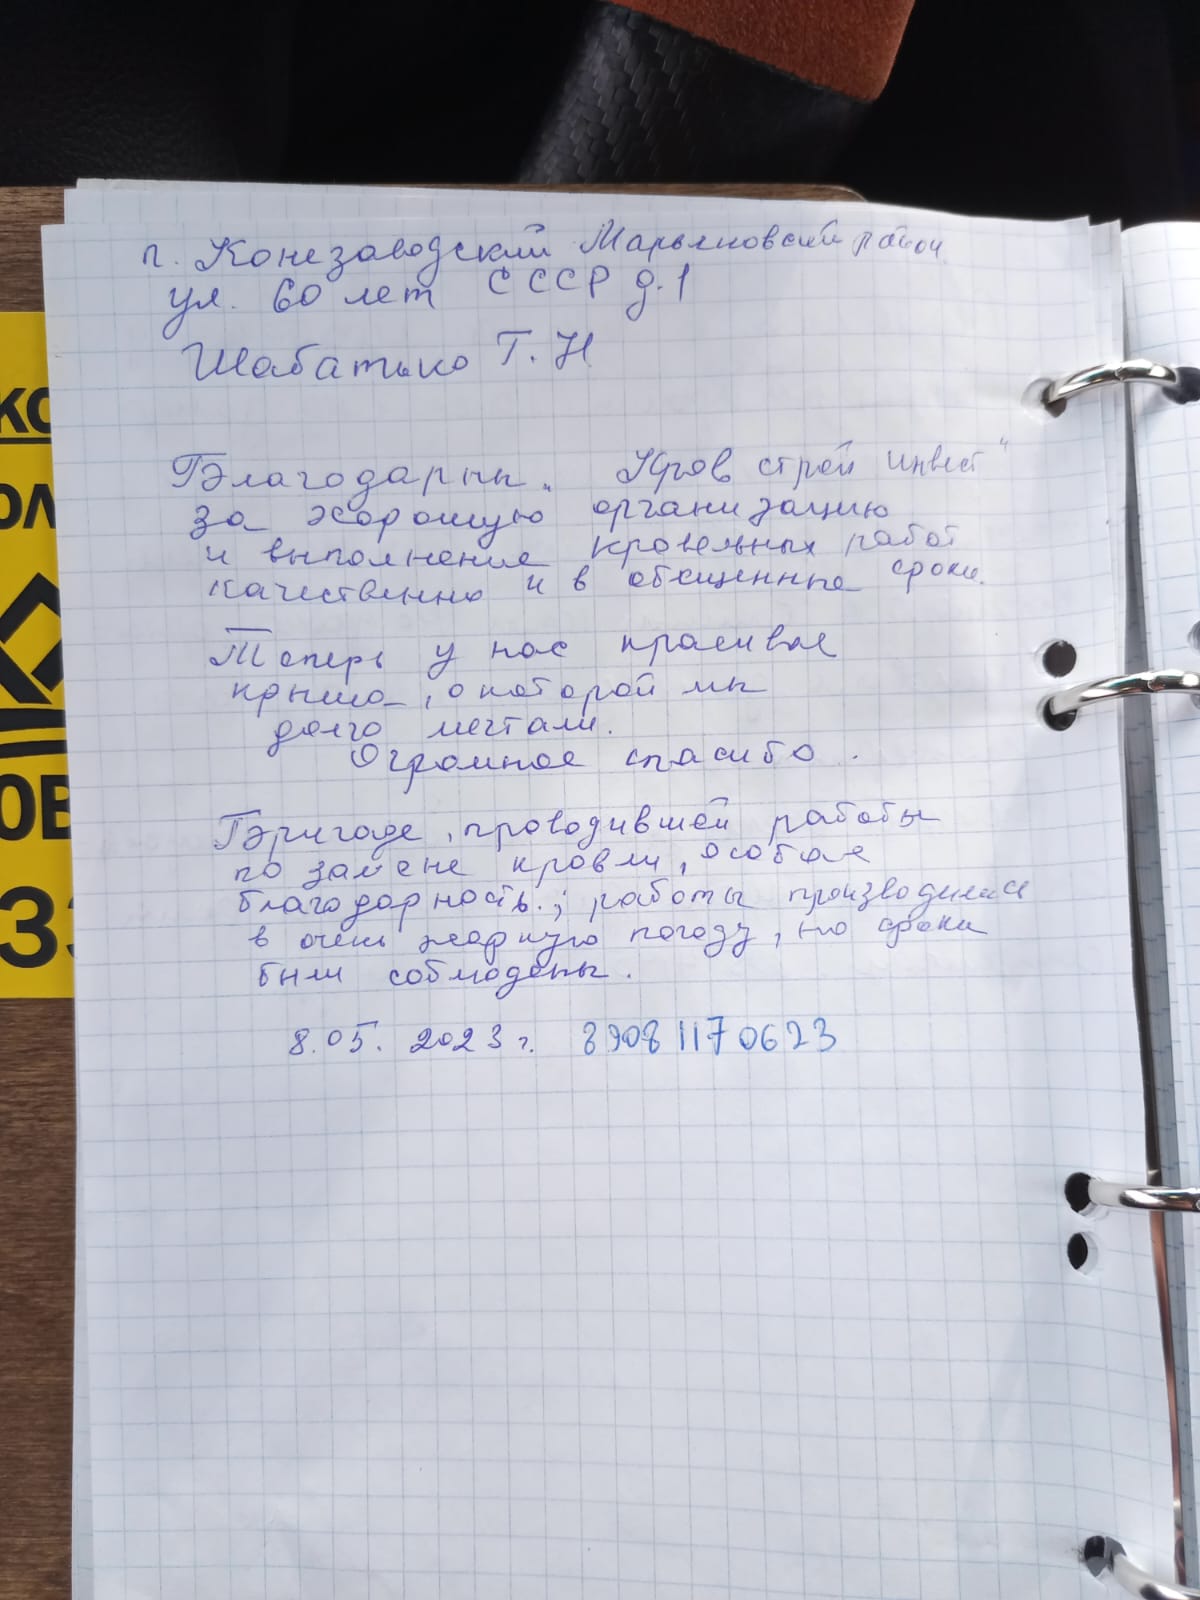 п. Конезаводский Марьяновский район
ул. 60 лет СССР д.1
Шабатько Т.Н
Благодарны „Кров строй инвест"
за хорошую организацию
и выполнение кровельных работ
качественно и в обещенные сроки.
Теперь у нас красивая
крыша, о которой мы
долго мечтали.
Огромное спасибо.
Бригаде, проводившей работы
по замене кровли, особая
благодарность.; работы производились
в очень жаркую погоду, но сроки
были соблюдены.
8.05. 2023 г. 89081170623
ОВ
33